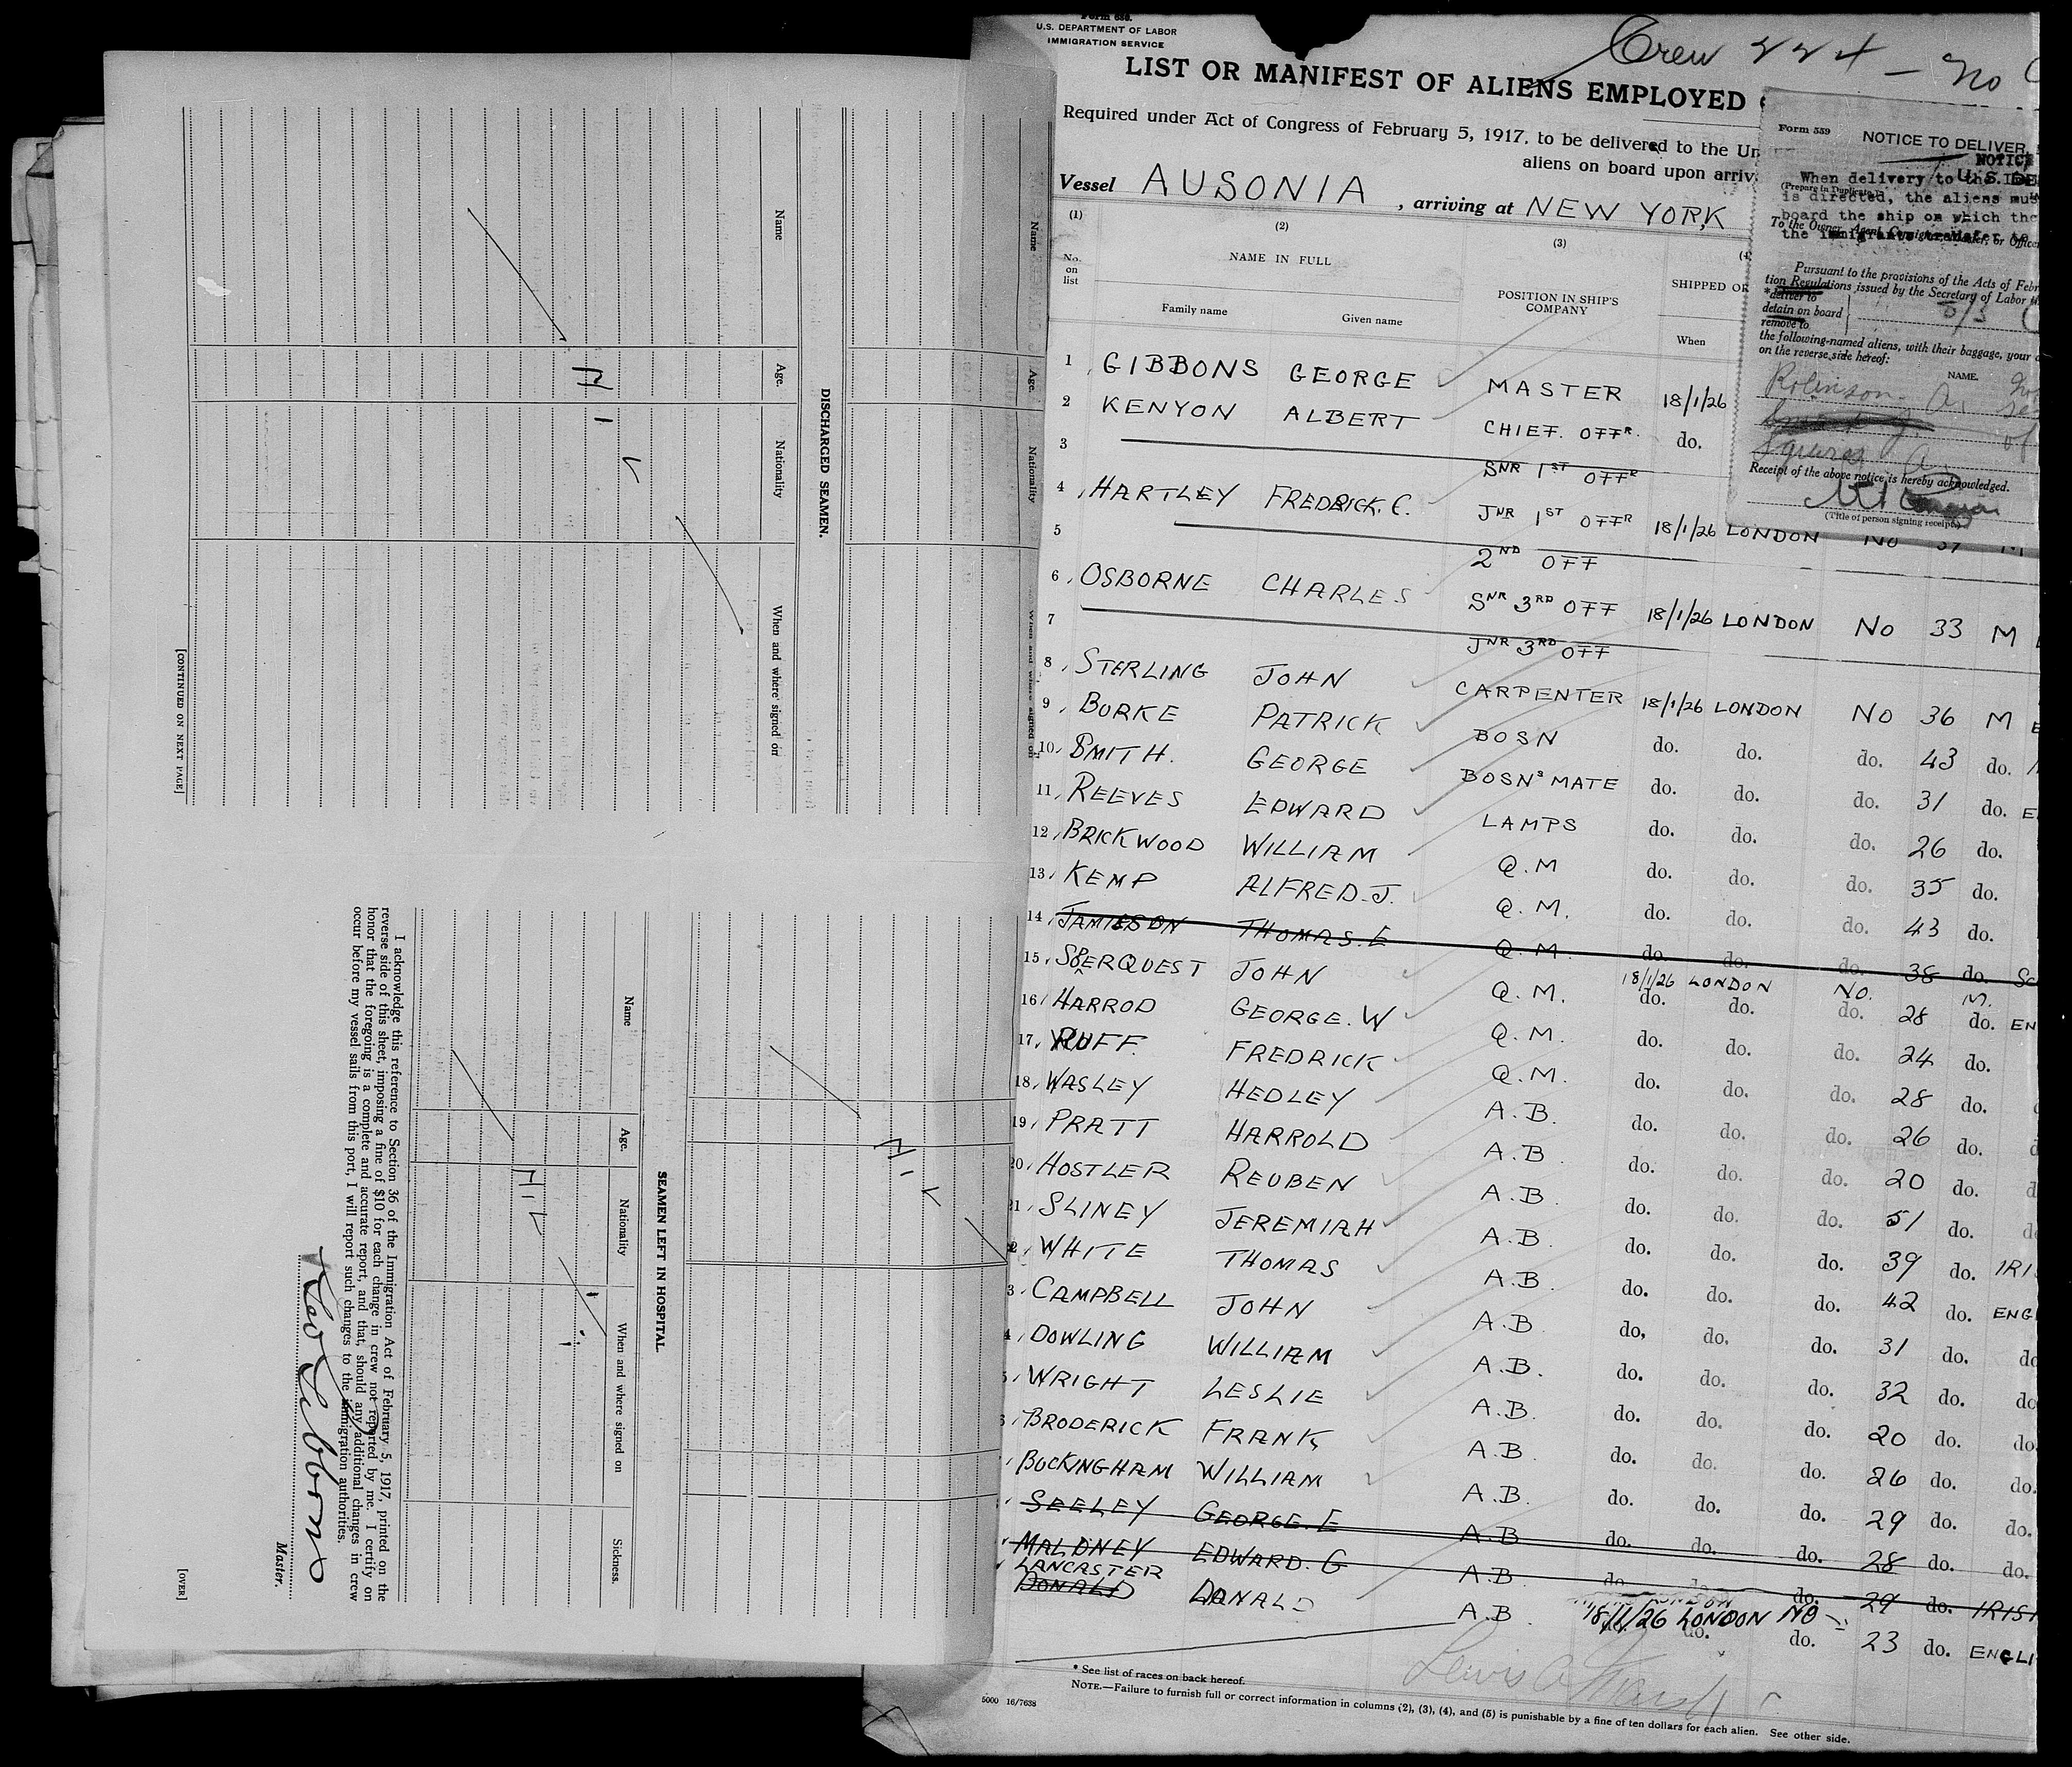 Form 689.
U.S. DEPARTMENT OF LABOR
IMMIGRATION SERVICE
Crew 224 - No
LIST OR MANIFEST OF ALIENS EMPLOYED
Required under Act of Congress of February 5, 1917, to be delivered to the Un
aliens on board upon arriv
Vessel AUSONIA, arriving at NEW YORK
(1) (2) (3) (4
No. on list
NAME IN FULL
Family name Given name
POSITION IN SHIP'S COMPANY
SHIPPED OR
When
1 GIBBONS GEORGE MASTER 18/1/26
2 KENYON ALBERT CHIEF. OFFR. do.
3 SNR 1ST OFFR
4 HARTLEY FREDRICK. C. JNR 1ST OFFR 18/1/26 LONDON No 37 M
5 2ND OFF
6 OSBORNE CHARLES SNR 3RD OFF 18/1/26 LONDON No 33 M
7 JNR 3RD OFF
8 STERLING JOHN CARPENTER 18/1/26 LONDON No 36 M E
9 BURKE PATRICK BOSN do. do. do. 43 do.
10 SMITH. GEORGE BOSNS MATE do. do. do. 31 do. E
11 REEVES EDWARD LAMPS do. do. do. 26 do.
12 BRICKWOOD WILLIAM Q.M do. do. do. 35 do.
13 KEMP ALFRED. J. Q.M. do. do. do. 43 do.
14 JAMIESON THOMAS. E Q.M. do. do. do. 38 do. Sc
18/1/26 LONDON No. M.
15 JOHN Q.M. do. do. do. 28 do. EN
16 HARROD GEORGE. W Q.M. do. do. do. 24 do.
17 RUFF. FREDRICK Q.M. do. do. do. 28 do.
18 WASLEY HEDLEY A.B. do. do. do. 26 do.
19 PRATT HARROLD A.B. do. do. do. 20 do.
20 HOSTLER REUBEN A.B. do. do. do. 51 do.
21 SLINEY JEREMIAH A.B. do. do. do. 39 do. IRI
2 WHITE THOMAS A.B. do. do. do. 42 do. ENG
3 CAMPBELL JOHN A.B do, do. do. 31 do. do
4 DOWLING WILLIAM A.B. do. do. do. 32 do. do
WRIGHT LESLIE A.B. do. do. do. 20 do. do.
BRODERICK FRANK A.B do. do. do. 26 do. do.
BUCKINGHAM WILLIAM A.B. do. do. do. 29 do. do.
SEELEY GEORGE. E A.B do. do. do. 28 do. do.
MALONEY EDWARD. G A.B do. do. do. 29 do. IRIS
LANCASTER
DONALD DONALD A.B 18/1/26 LONDON NO do. 23 do. ENGLI
* See list of races on back hereof.
NOTE.—Failure to furnish full or correct information in columns (2), (3), (4), and (5) is punishable by a fine of ten dollars for each alien. See other side.
5000 16/7638
Form 559
NOTICE TO DELIVER,
NOTICE
U.S. DE
When delivery to the
(Prepare in Duplicate.)
is directed, the aliens mus
board the ship on which the
To the Owner, Agent, Consignee, Master, or Officer
Pursuant to the provisions of the Acts of Febr
tion Regulations issued by the Secretary of Labor
*deliver to
detain on board
remove to
the following-named aliens, with their baggage, your
on the reverse side hereof:
NAME.
Robinson
Squires A.
Receipt of the above notice is hereby acknowledged.
(Title of person signing receipt.)
Name
Age.
Nationality
When and where signed on
DISCHARGED SEAMEN.
Name
Age.
Nationality
When and where signed on
NIL
[CONTINUED ON NEXT PAGE]
NIL
SEAMEN LEFT IN HOSPITAL.
Name
Age.
Nationality
When and where signed on
Sickness.
NIL
I acknowledge this reference to Section 36 of the Immigration Act of February 5, 1917, printed on the
reverse side of this sheet, imposing a fine of $10 for each change in crew not reported by me. I certify on
honor that the foregoing is a complete and accurate report, and that, should any additional changes in crew
occur before my vessel sails from this port, I will report such changes to the immigration authorities.
Geo Gibbons
Master.
[OVER]